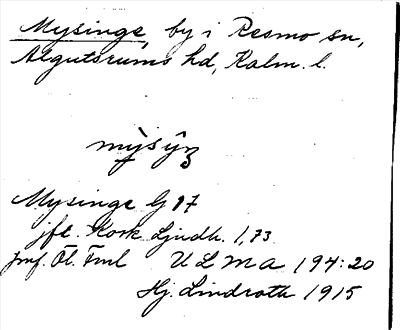 Mysinge, by i Resmo sn,
Algutsrums hd, Kalm. l.
mỳsŷŋ
Mysinge G 17
jft. Kock Ljudh. 1,73
jmf. Öl. Fml ULMA 194:20
Hj. Lindroth 1915